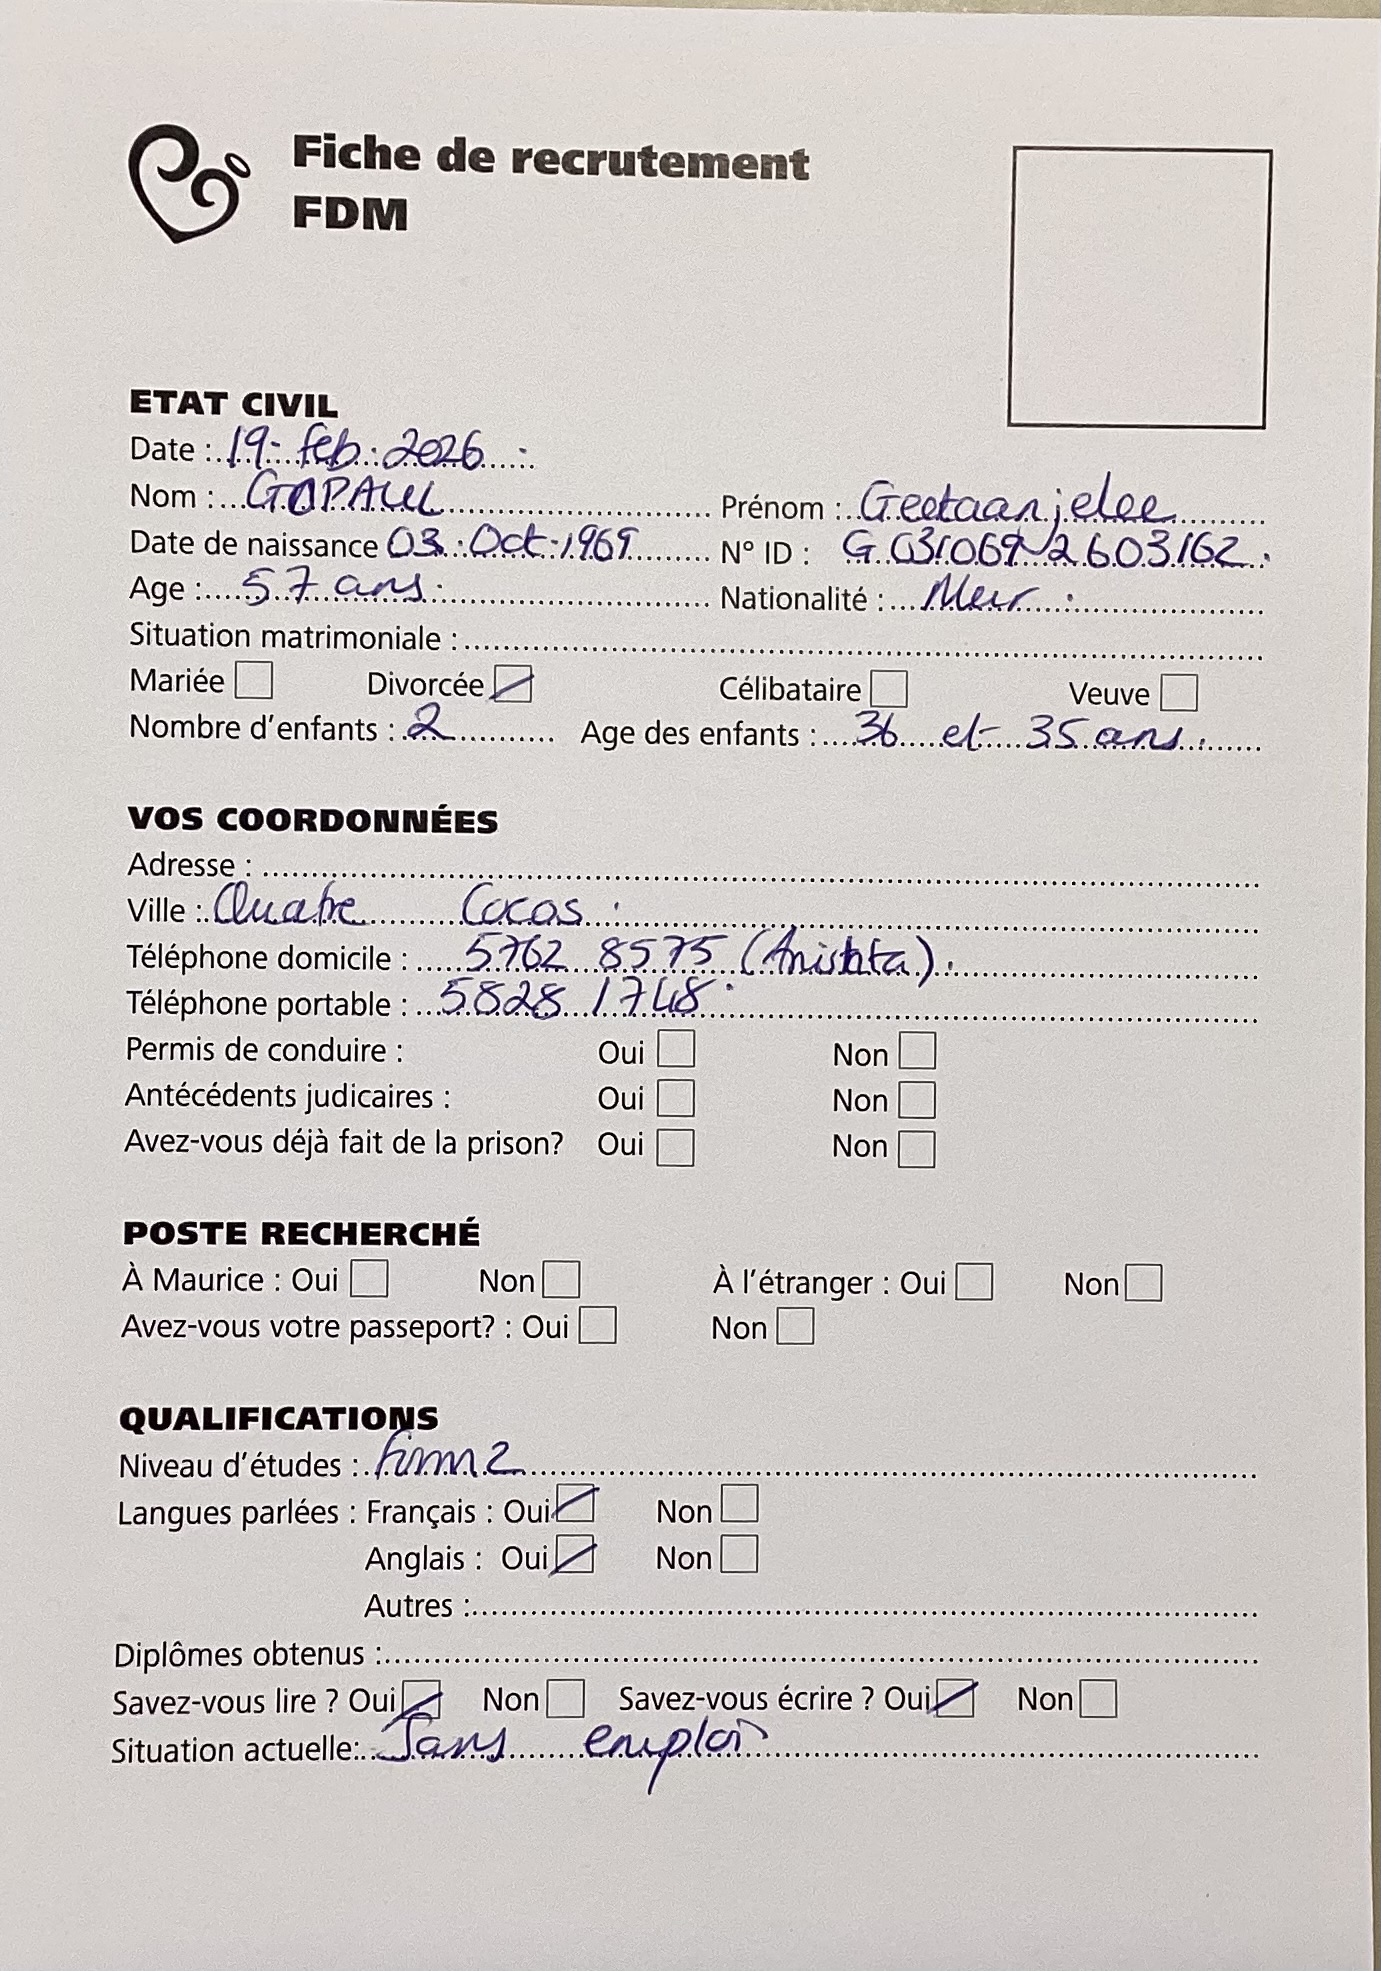 Fiche de recrutement
FDM
ETAT CIVIL
Date : 19 - feb. 2026
Nom : GOPAUL Prénom : Geetaanjelee
Date de naissance 03. Oct. 1969 N° ID : G031069 2603162.
Age : 57 ans. Nationalité : Maur.
Situation matrimoniale :
Mariée Divorcée Célibataire Veuve
Nombre d'enfants : 2 Age des enfants : 36 et 35 ans.
VOS COORDONNÉES
Adresse :
Ville : Quatre Cocos.
Téléphone domicile : 5762 8575 (Anishta).
Téléphone portable : 5828 1748.
Permis de conduire : Oui Non
Antécédents judicaires : Oui Non
Avez-vous déjà fait de la prison? Oui Non
POSTE RECHERCHÉ
À Maurice : Oui Non À l'étranger : Oui Non
Avez-vous votre passeport? : Oui Non
QUALIFICATIONS
Niveau d'études : form 2
Langues parlées : Français : Oui Non
Anglais : Oui Non
Autres :
Diplômes obtenus :
Savez-vous lire ? Oui Non Savez-vous écrire ? Oui Non
Situation actuelle: Sans emploi